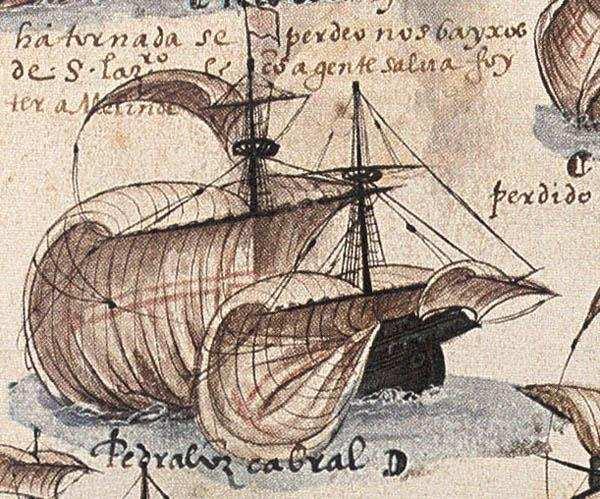 há tornada se perdeo nos bayxos
de · S · lazro cõ a gente salua foy
ter a Melinde
perdido
Pedraluz cabral D